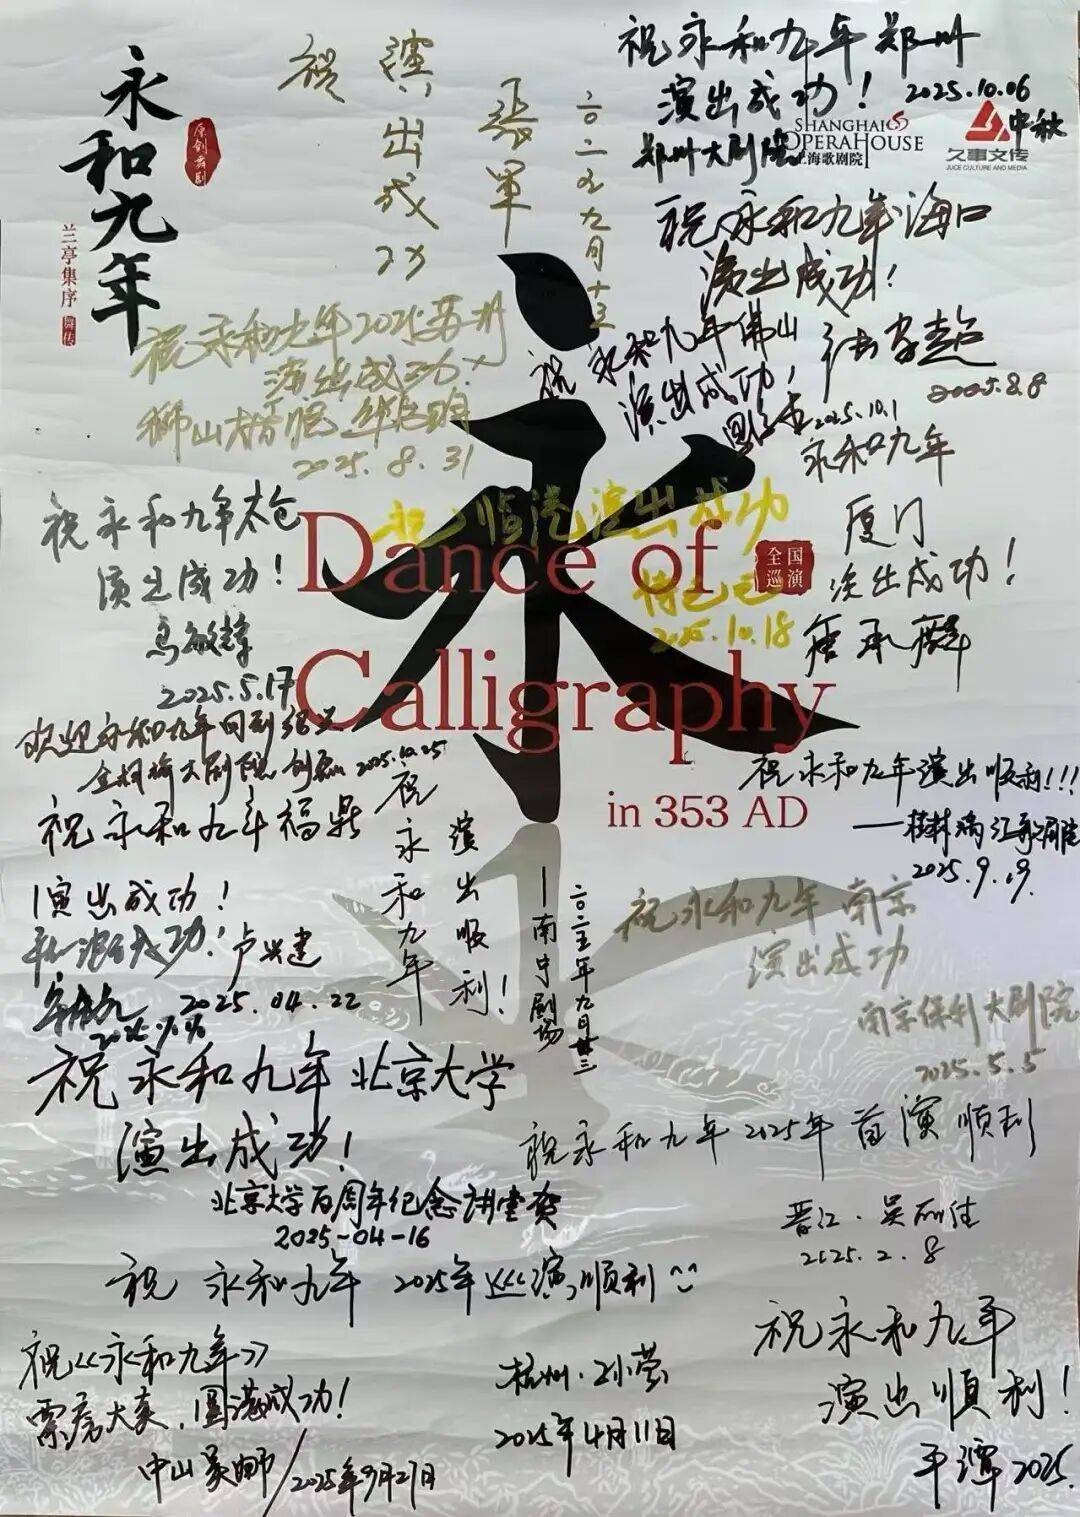 永和九年
原创舞剧
兰亭集序
舞传
祝
演出成功
张军
二〇二五九月十三
祝永和九年郑州
演出成功！
2025.10.06
中秋
郑州大剧院
SHANGHAI
OPERA HOUSE
上海歌剧院
久事文传
JUCE CULTURE AND MEDIA
祝永和九年海口
演出成功！
2025.8.8
祝永和九年2025苏州
演出成功！
狮山大
2025.8.31
祝永和九年佛山
演出成功！
2025.10.1
永和九年
厦门
演出成功！
祝永和九年太仓
演出成功！
2025.5.17
祝 临港演出成功
2025.10.18
永
Dance of
Calligraphy
in 353 AD
全国
巡演
欢迎永和九年回到绍兴
大剧院
2025.10.25
祝永和九年演出顺利!!!
——桂林漓江歌剧院
2025.9.19.
祝永和九年福鼎
演出成功！
卢兴建
2025.04.22
祝永和九年
演出顺利！
—南宁剧场
二〇二五年九月廿三
祝永和九年南京
演出成功
南京保利大剧院
2025.5.5
祝永和九年北京大学
演出成功！
北京大学百周年纪念讲堂贺
2025-04-16
祝永和九年2025年首演顺利
晋江·吴丽佳
2025.2.8
祝 永和九年 2025年巡演顺利^^
杭州·孙莹
2025年4月11日
祝永和九年
演出顺利！
平潭2025.
祝《永和九年》
票房大卖，圆满成功！
中山
2025年9月27日